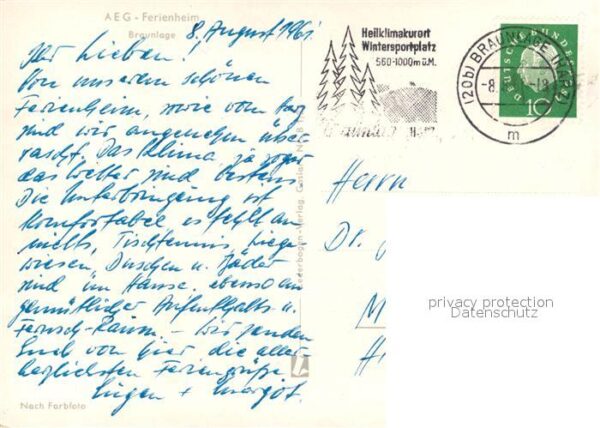 AEG - Ferienheim
Braunlage
8. August 1961
Ihr Lieben!
Von unserem schönen
Ferienheim, sowie vom Harz
sind wir angenehm über-
rascht. Das Klima, ja sogar
das Wetter sind bestens.
Die Unterbringung ist
komfortabel, es fehlt an
nichts, Tischtennis, Liege-
wiesen, Duschen u. Bäder
sind im Hause, ebenso ein
gemütlicher Aufenthalts u.
Fernseh-Raum – wir senden
Euch von hier die aller
herzlichsten Feriengrüße
Eugen + Margot
Nach Farbfoto
Heilklimakurort
Wintersportplatz
560-1000m ü.M.
(20b) BRAUNLAGE (HARZ)
-8.
-18
m
DEUTSCHE BUNDESPOST
10
Herrn
Dr.
M
H
privacy protection
Datenschutz